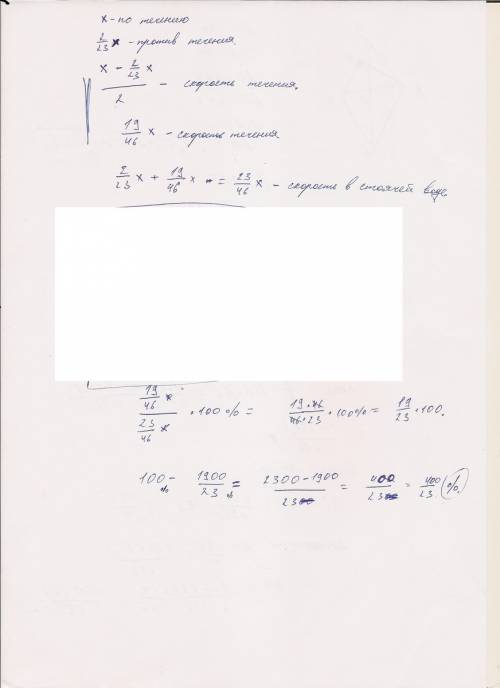 x - по течению
2/23 x - против течения.
(x - 2/23 x)/2 - скорость течения.
19/46 x - скорость течения.
2/23 x + 19/46 x = 23/46 x - скорость в стоячей воде.
(19/46 x)/(23/46 x) • 100% = (19•46)/(46•23) • 100% = 19/23 • 100.
100% - 1900/23 % = (2300-1900)/23 = 400/23 = 400/23 %.